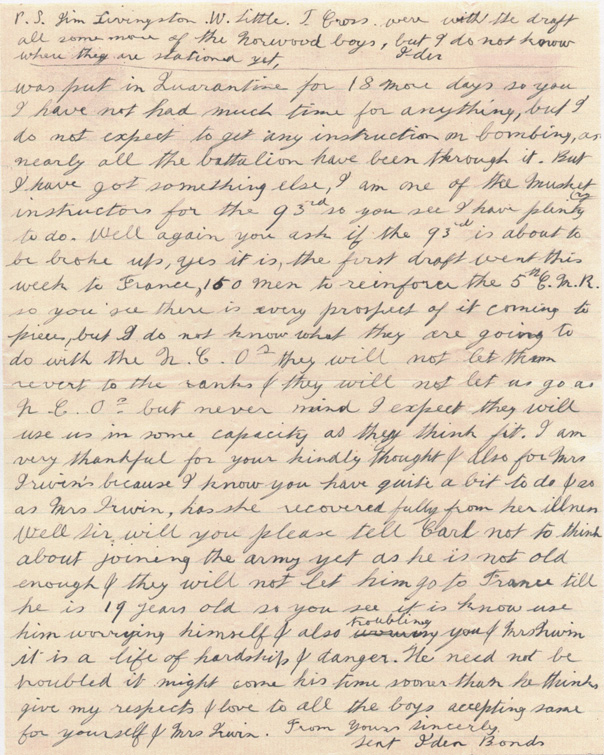 P.S. Jim Livingston. W. Little. T. Cross. were with the draft
all some more of the Norwood boys, but I do not know
where they are stationed yet, Iden
was put in Quarantine for 18 more days so you
I have not had much time for anything, but I
do not expect to get any instruction on bombing, as
nearly all the battalion have been through it. But
I have got something else, I am one of the musket
instructors for the 93rd so you see I have plenty
to do. Well again you ask if the 93rd is about to
be broke up, yes it is, the first draft went this
week to France, 150 men to reinforce the 5th C.M.R.
so you see there is every prospect of it coming to
piece, but I do not know what they are going to
do with the N.C.Os they will not let them
revert to the ranks & they will not let us go as
N.C.Os but never mind I expect they will
use us in some capacity as they think fit. I am
very thankful for your kindly thought & also for Mrs
Irwin's because I know you have quite a bit to do & so
as Mrs Irwin, has she recovered fully from her illness
Well Sir, will you please tell Carl not to think
about joining the army yet as he is not old
enough & they will not let him go to France till
he is 19 years old so you see it is know use
him worrying himself & also troubling you & Mrs Irwin
it is a life of hardship & danger. He need not be
troubled it might come his time sooner than he thinks
give my respects & love to all the boys accepting same
for yourself & Mrs Irwin. From Yours sincerely
Sert Iden Bonds